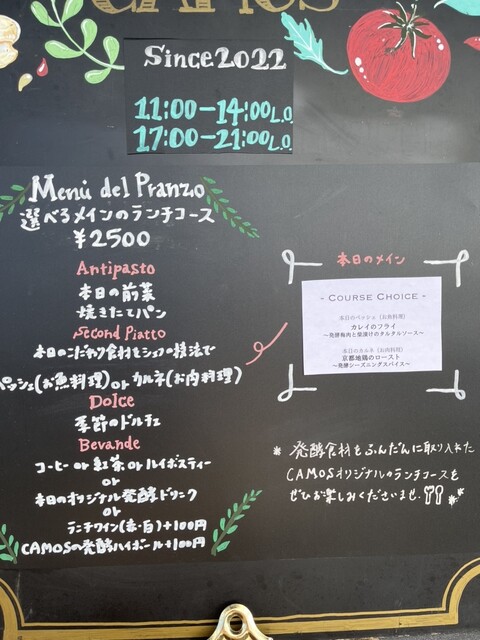 CAMOS
Since2022
11:00-14:00L.O.
17:00-21:00L.O.
Menù del Pranzo
選べるメインのランチコース
¥2500
Antipasto
本日の前菜
焼きたてパン
Second Piatto
本日のこだわり食材をシェフの技法で
ペッシェ(お魚料理)orカルネ(お肉料理)
Dolce
季節のドルチェ
Bevande
コーヒー or 紅茶 or ルイボスティー
or
本日のオリジナル発酵ドリンク
or
ランチワイン(赤・白)+100円
CAMOSの発酵ハイボール+100円
本日のメイン
- COURSE CHOICE -
本日のペッシェ (お魚料理)
カレイのフライ
～発酵梅肉と柴漬けのタルタルソース～
本日のカルネ (お肉料理)
京都地鶏のロースト
～発酵シーズニングスパイス～
* 発酵食材をふんだんに取り入れた
CAMOSオリジナルのランチコースを
ぜひお楽しみくださいませ。